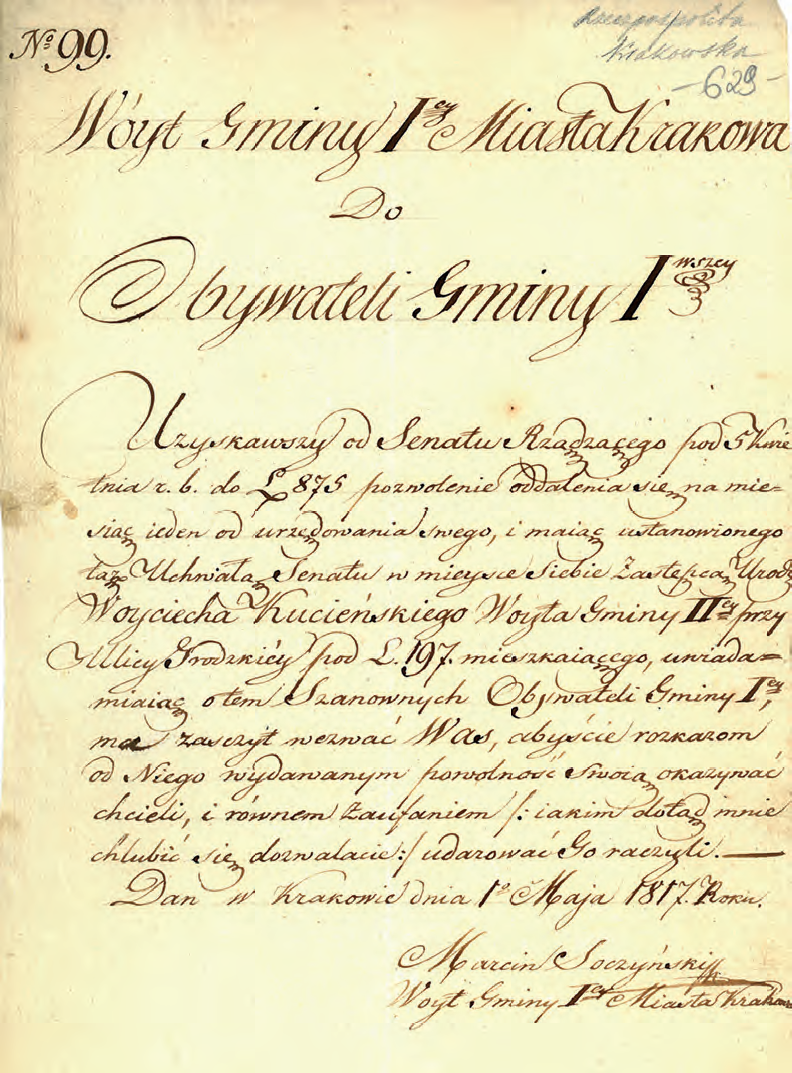 Rzeczpospolita
Krakowska
No 99.
- 629 -
Wóyt Gminy Iey Miasta Krakowa
Do
Obywateli Gminy Iwszey
Uzyskawszy od Senatu Rządzącego pod 5 Kwie
tnia r. b. do L 875 pozwolenie oddalenia się na mie=
siąc ieden od urzędowania swego, i maiąc ustanowionego
taż Uchwałą Senatu w mieysce siebie Zastępcą Urodz
Woyciecha Kucieńskiego Woyta Gminy IIey przy
Ulicy Grodzkiéy pod L. 197. mieszkaiącego, uwiada=
miaiąc o tem Szanownych Obywateli Gminy Iey,
ma zaszczyt wezwać Was, abyście rozkazom
od Niego wydawanym powolność swoią okazywać
chcieli, i równem Zaufaniem /: iakim dotąd mnie
chlubić się dozwalacie :/ udarować Go raczyli. —
Dan w Krakowie dnia 1o Maja 1817. Roku.
Marcin Soczyński
Woyt Gminy Iey Miasta Krakowa